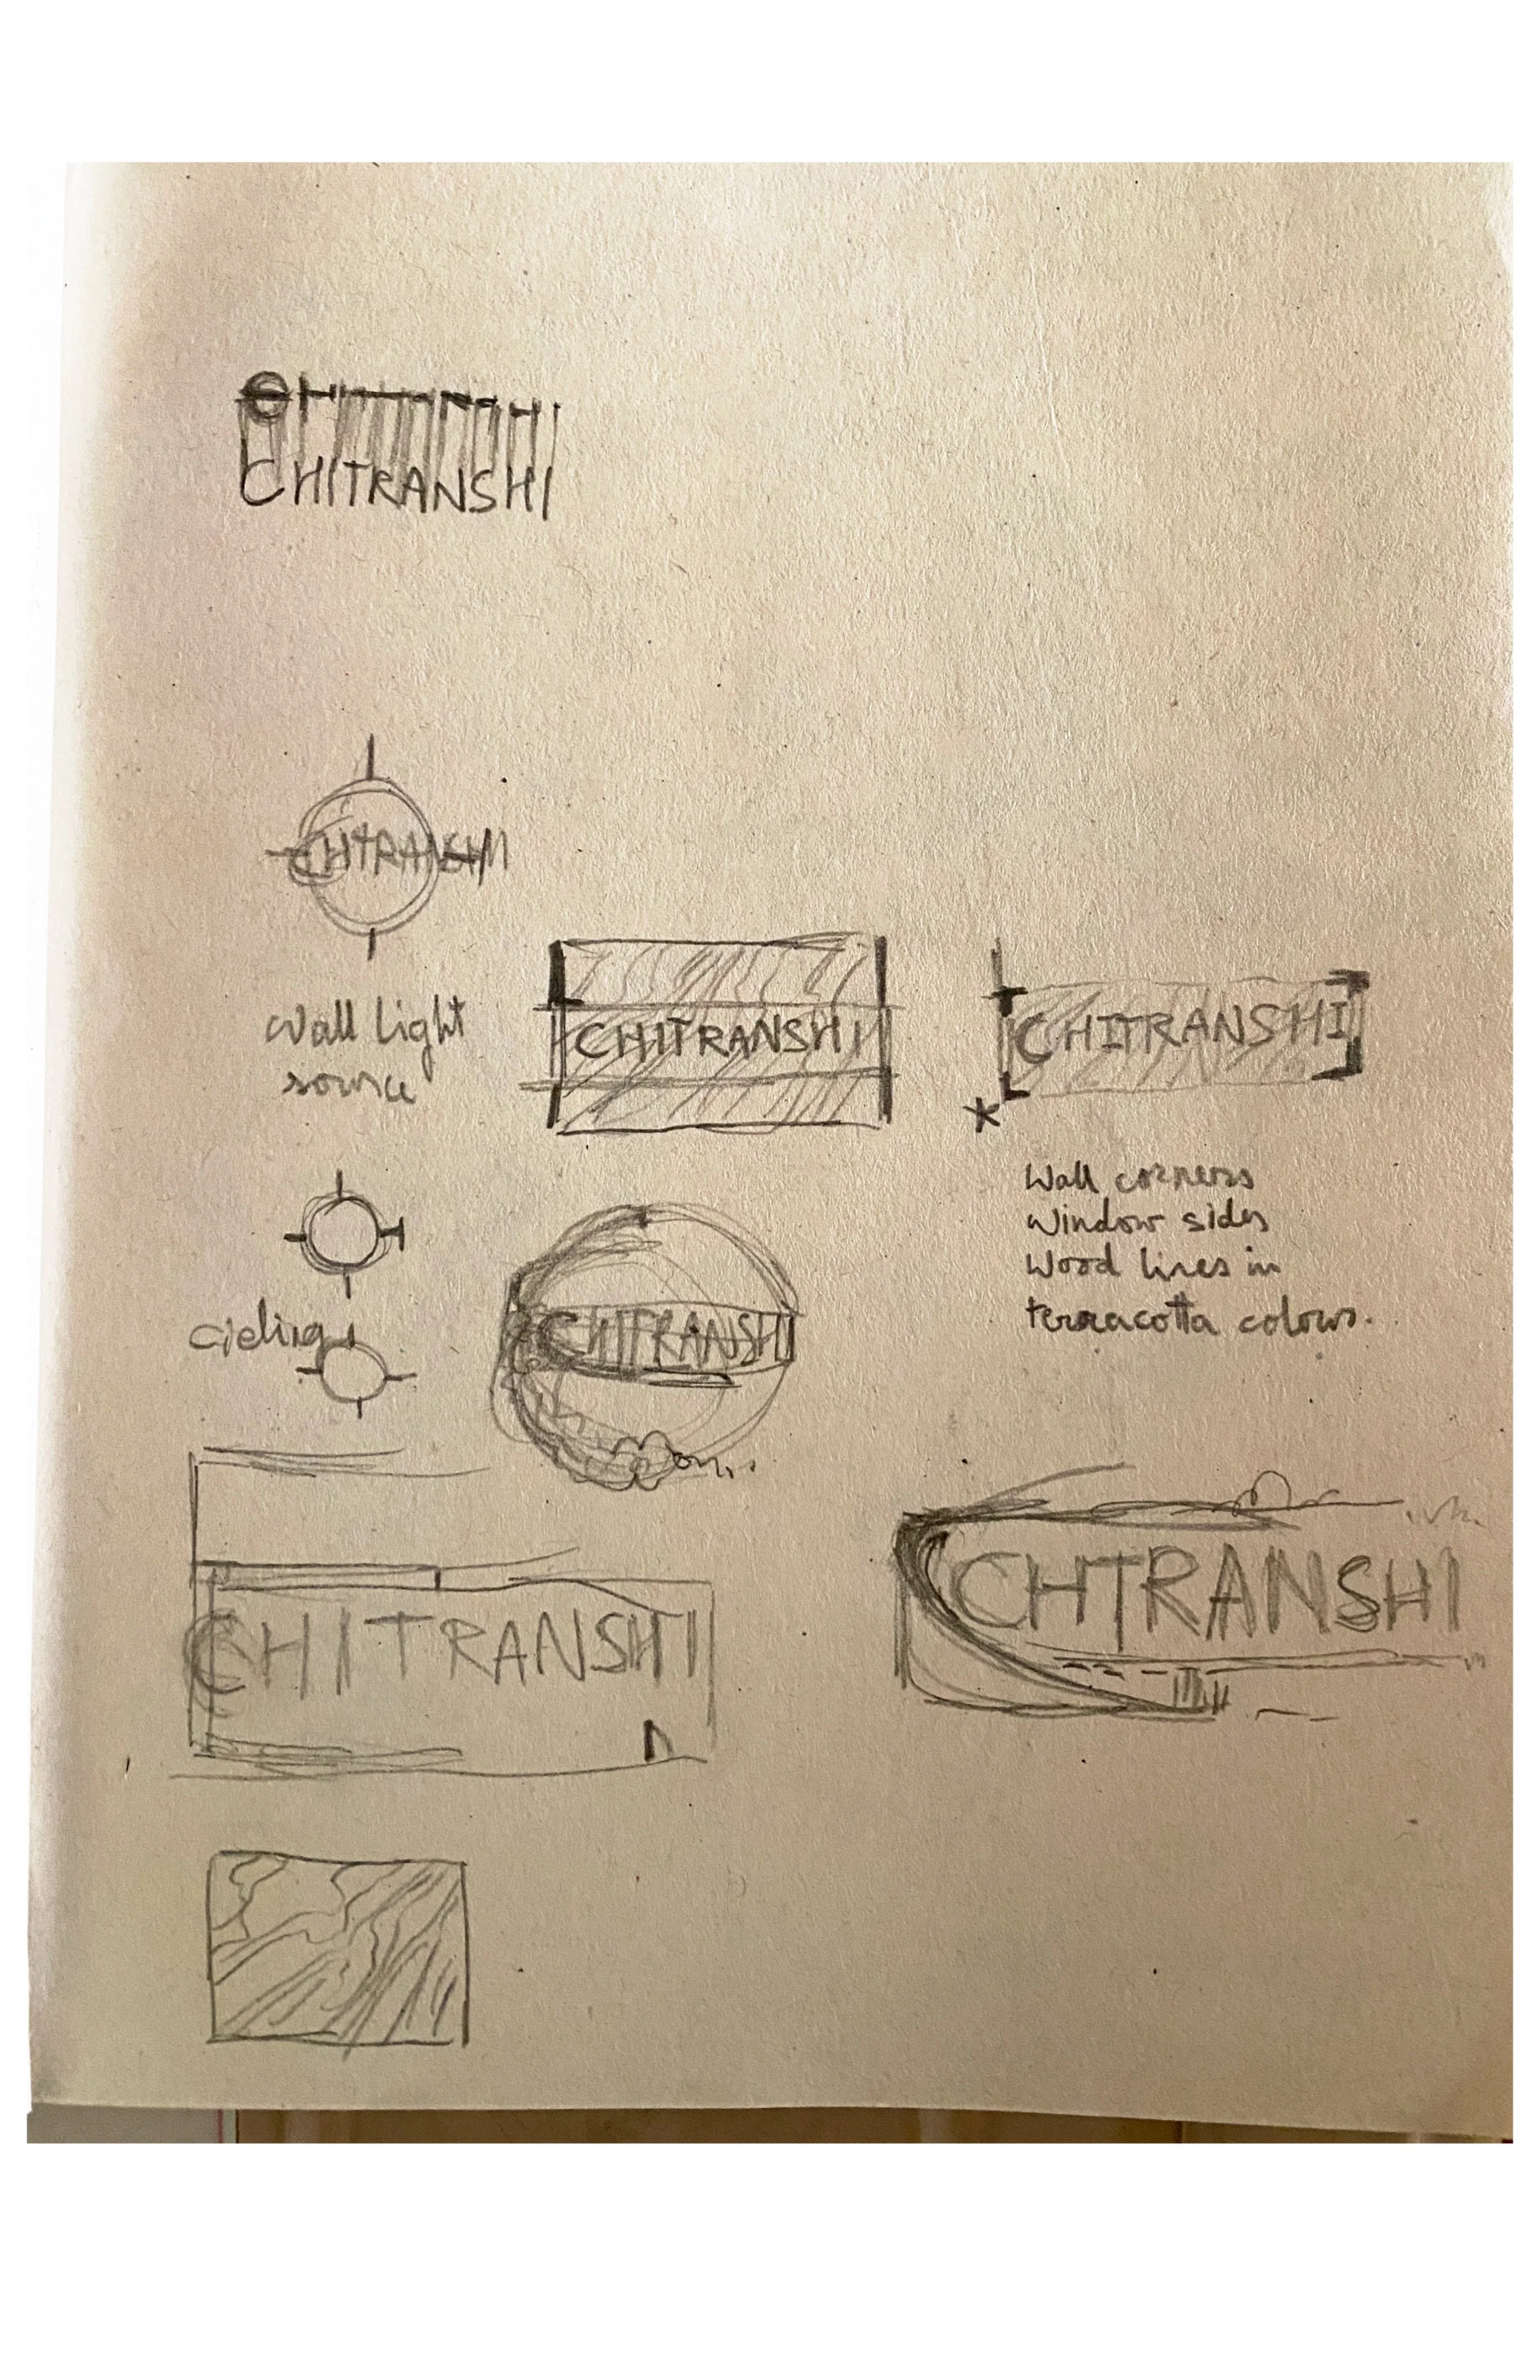 CHITRANSHI
CHITRANSHI
Wall light
source
CHITRANSHI
CHITRANSHI
Wall corners
Window sides
Wood lines in
terracotta colours.
cieling
CHITRANSHI
CHITRANSHI
CHTRANSHI